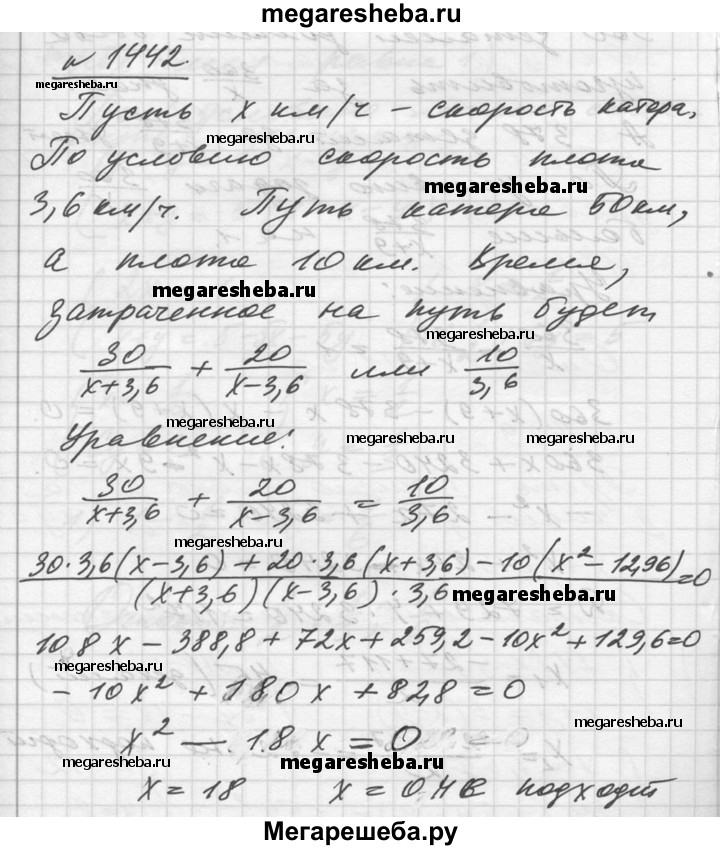 megaresheba.ru
№ 1442
megaresheba.ru
Пусть x км/ч – скорость катера.
megaresheba.ru
По условию скорость плота
megaresheba.ru
3,6 км/ч. Путь катера 50 км,
а плота 10 км. Время,
megaresheba.ru
затраченное на путь будет
megaresheba.ru
30/(x+3,6) + 20/(x-3,6) или 10/3,6
megaresheba.ru
Уравнение:
megaresheba.ru megaresheba.ru
30/(x+3,6) + 20/(x-3,6) = 10/3,6
megaresheba.ru
(30·3,6(x-3,6)+20·3,6(x+3,6)-10(x²-12,96))/((x+3,6)(x-3,6)·3,6)=0
megaresheba.ru
108x-388,8+72x+259,2-10x²+129,6=0
megaresheba.ru
-10x²+180x+828=0
megaresheba.ru
x² - 18x=0
megaresheba.ru megaresheba.ru
x=18 x=0 не подходит
megaresheba.ru
Мегарешеба.ру